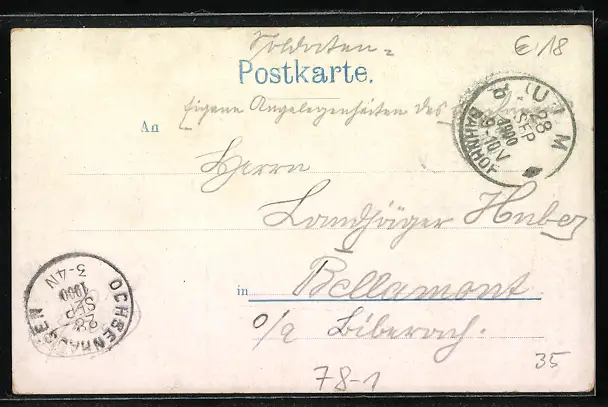 Soldaten=
€ 18
Postkarte.
Eigene Angelegenheiten des
An
ULM
28
SEP
1900
9-10V
BAHNHOF
Herrn
Landjäger Huber
in Bellamont
o/a Biberach.
OCHSENHAUSEN
28
SEP
1900
3-4N
35
78-1